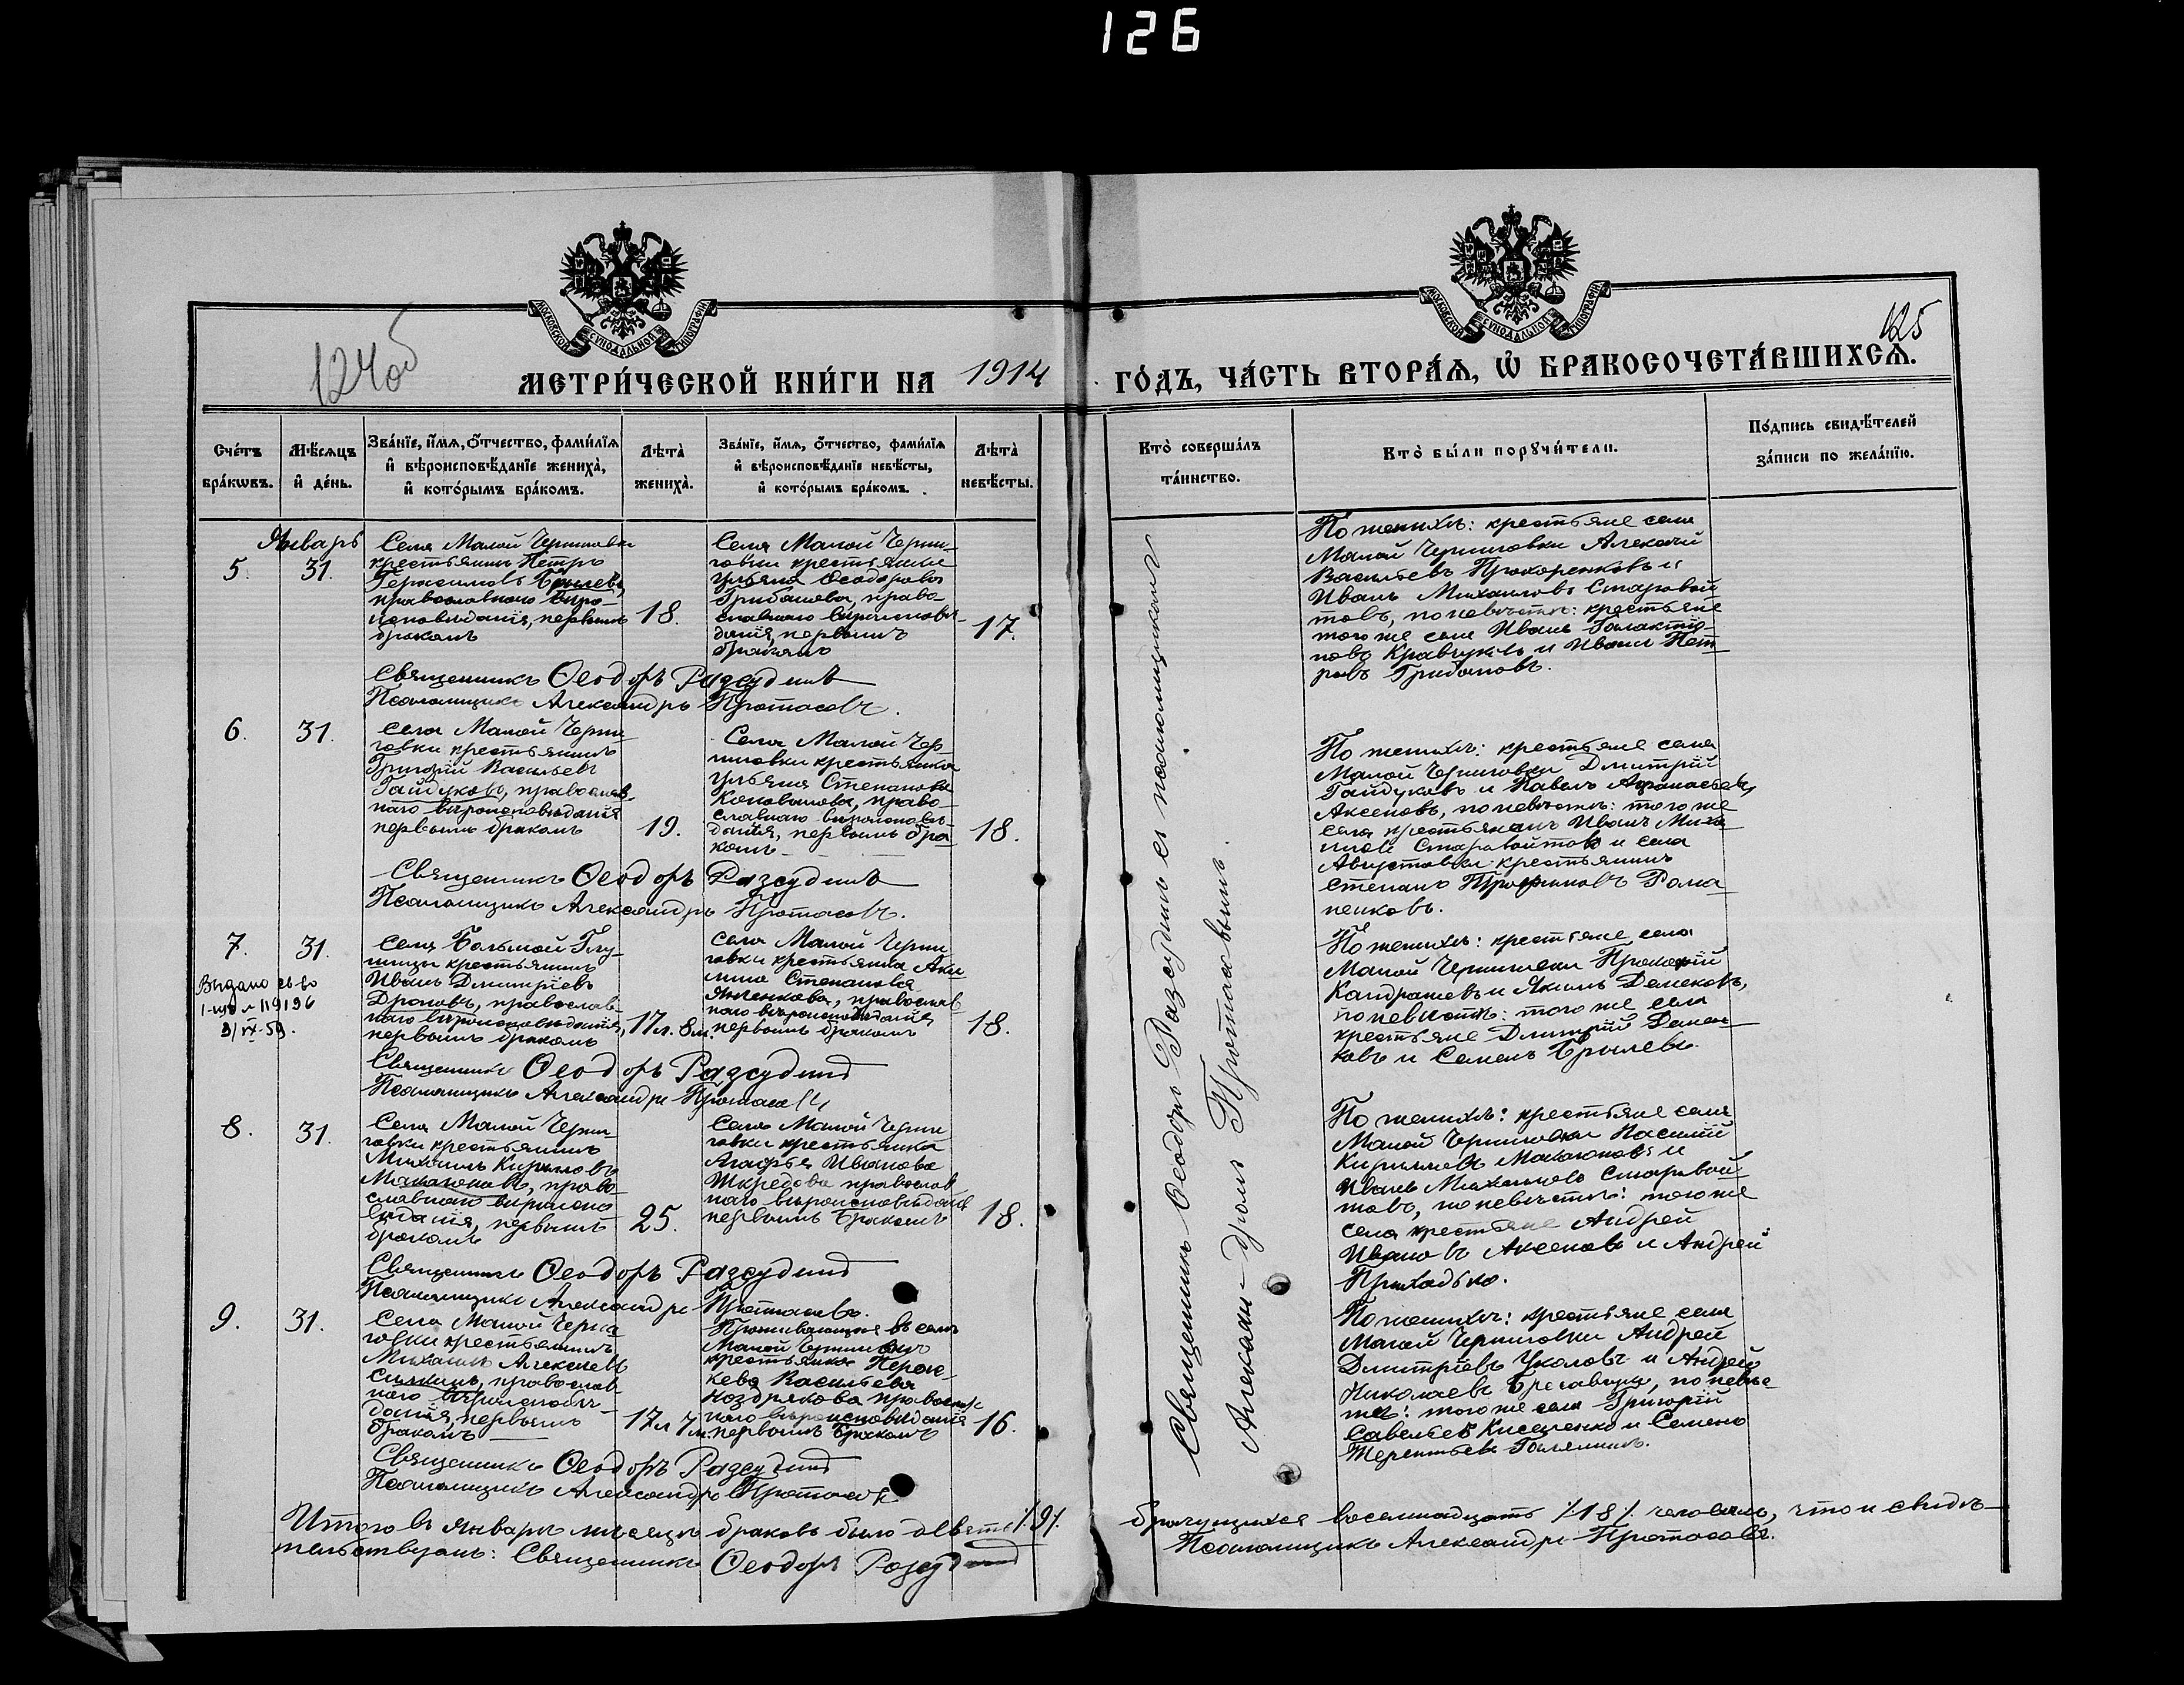 126
МОСКОВСКОЙ СѴНОДАЛЬНОЙ ТИПОГРАФІИ
МОСКОВСКОЙ СѴНОДАЛЬНОЙ ТИПОГРАФІИ
124об
125
МЕТРИ́ЧЕСКОЙ КНИ́ГИ НА 1914 ГО́ДЪ, ЧА́СТЬ ВТОРА́Я, Ѡ҆ БРАКОСОЧЕТА́ВШИХСЯ.
Сче́тъ
бра́кѡвъ.
Мѣ́сяцъ
и҆ де́нь.
Зва́нїе, и҆́мя, ѻ҆́тчество, фами́лїя
и҆ вѣроисповѣ́данїе жениха̀,
и҆ кото́рымъ бра́комъ.
Лѣта̀
жениха̀.
Зва́нїе, и҆́мя, ѻ҆́тчество, фами́лїя
и҆ вѣроисповѣ́данїе невѣ́сты,
и҆ кото́рымъ бра́комъ.
Лѣта̀
невѣ́сты.
Кто̀ соверша́лъ
та́инство.
Кто̀ бы́ли порꙋчи́тели.
По́дпись свидѣ́телей
за́писи по жела́нїю.
Январь
5.
31.
Села Малой Черниговки
крестьянинъ Петръ
Герасимовъ Брылевъ,
православнаго вѣро-
исповѣданія, первымъ
бракомъ
18.
Села Малой Черни-
говки крестьянка
Ульяна Ѳеодорова
Грибанова, право-
славнаго вѣроисповѣ-
данія, первымъ
бракомъ
17.
По женихѣ: крестьяне села
Малой Черниговки Алексѣй
Васильевъ Прохоренковъ и
Иванъ Михаиловъ Старовой-
товъ, по невѣстѣ: крестьяне
того же села Иванъ Галактіо-
новъ Кравчукъ и Иванъ Пет-
ровъ Грибановъ.
Священникъ Ѳеодоръ Разсудинъ
Псаломщикъ Александръ Протасовъ.
6.
31.
Села Малой Черни-
говки крестьянинъ
Григорій Васильевъ
Гайдуковъ, православ-
наго вѣроисповѣданія
первымъ бракомъ
19.
Села Малой Чер-
ниговки крестьянка
Ульяна Степанова
Коновалова, право-
славнаго вѣроисповѣ-
данія, первымъ бра-
комъ
18.
По женихѣ: крестьяне села
Малой Черниговки Дмитрій
Гайдуковъ и Павелъ Аѳанасьевъ
Аксеновъ, по невѣстѣ: того же
села крестьянинъ Иванъ Миха-
иловъ Старовойтовъ и села
Августовки крестьянинъ
Степанъ Трофимовъ Рома-
ненковъ.
Священникъ Ѳеодоръ Разсудинъ
Псаломщикъ Александръ Протасовъ.
7.
31.
Выдано св-во
3/IX-59.
Села Большой Глу-
шицы крестьянинъ
Иванъ Дмитріевъ
Дроновъ, православ-
наго вѣроисповѣданія,
первымъ бракомъ
17л. 8м.
Села Малой Черни-
говки крестьянка
Степанова
православ-
наго вѣроисповѣданія
первымъ бракомъ
18.
По женихѣ: крестьяне села
Малой Черниговки Прокофій
Кандрашевъ и Якимъ
по невѣстѣ: того же села
крестьяне Дмитрій
и Семенъ Брылевъ.
Священникъ Ѳеодоръ Разсудинъ
Псаломщикъ Александръ Протасовъ
8.
31.
Села Малой Черни-
говки крестьянинъ
Михаилъ Кириловъ
Макагоновъ, право-
славнаго вѣроиспо-
вѣданія, первымъ
бракомъ
25.
Села Малой Черни-
говки крестьянка
Агафья Иванова
Шкредова православ-
наго вѣроисповѣданія
первымъ бракомъ
18.
По женихѣ: крестьяне села
Малой Черниговки Василій
Кирилловъ Макагоновъ и
Иванъ Михаиловъ Старовой-
товъ, по невѣстѣ: того же
села крестьяне Андрей
Ивановъ Аксеновъ и Андрей
Приходько.
Священникъ Ѳеодоръ Разсудинъ
Псаломщикъ Александръ Протасовъ.
9.
31.
Села Малой Черни-
говки крестьянинъ
Михаилъ Алексѣевъ
православ-
наго вѣроисповѣ-
данія, первымъ
бракомъ
17л 7м.
Проживающая въ селѣ
Малой Черниговкѣ
крестьянка
Васильева
Ноздрякова православ-
наго вѣроисповѣданія
первымъ бракомъ
16.
По женихѣ: крестьяне села
Малой Черниговки Андрей
Дмитріевъ Уколовъ и Андрей
Николаевъ по невѣс-
тѣ: того же села Григорій
Савельевъ Кищенко и Семенъ
Терентьевъ
Священникъ Ѳеодоръ Разсудинъ
Псаломщикъ Александръ Протасовъ
Священникъ Ѳеодоръ Разсудинъ съ псаломщикомъ
Александромъ Протасовымъ.
Итого въ январѣ мѣсяцѣ браковъ было девять /9/. брачущихся восемнадцать /18/. человѣкъ, что и свидѣ-
тельствуемъ: Священникъ Ѳеодоръ Разсудинъ Псаломщикъ Александръ Протасовъ.